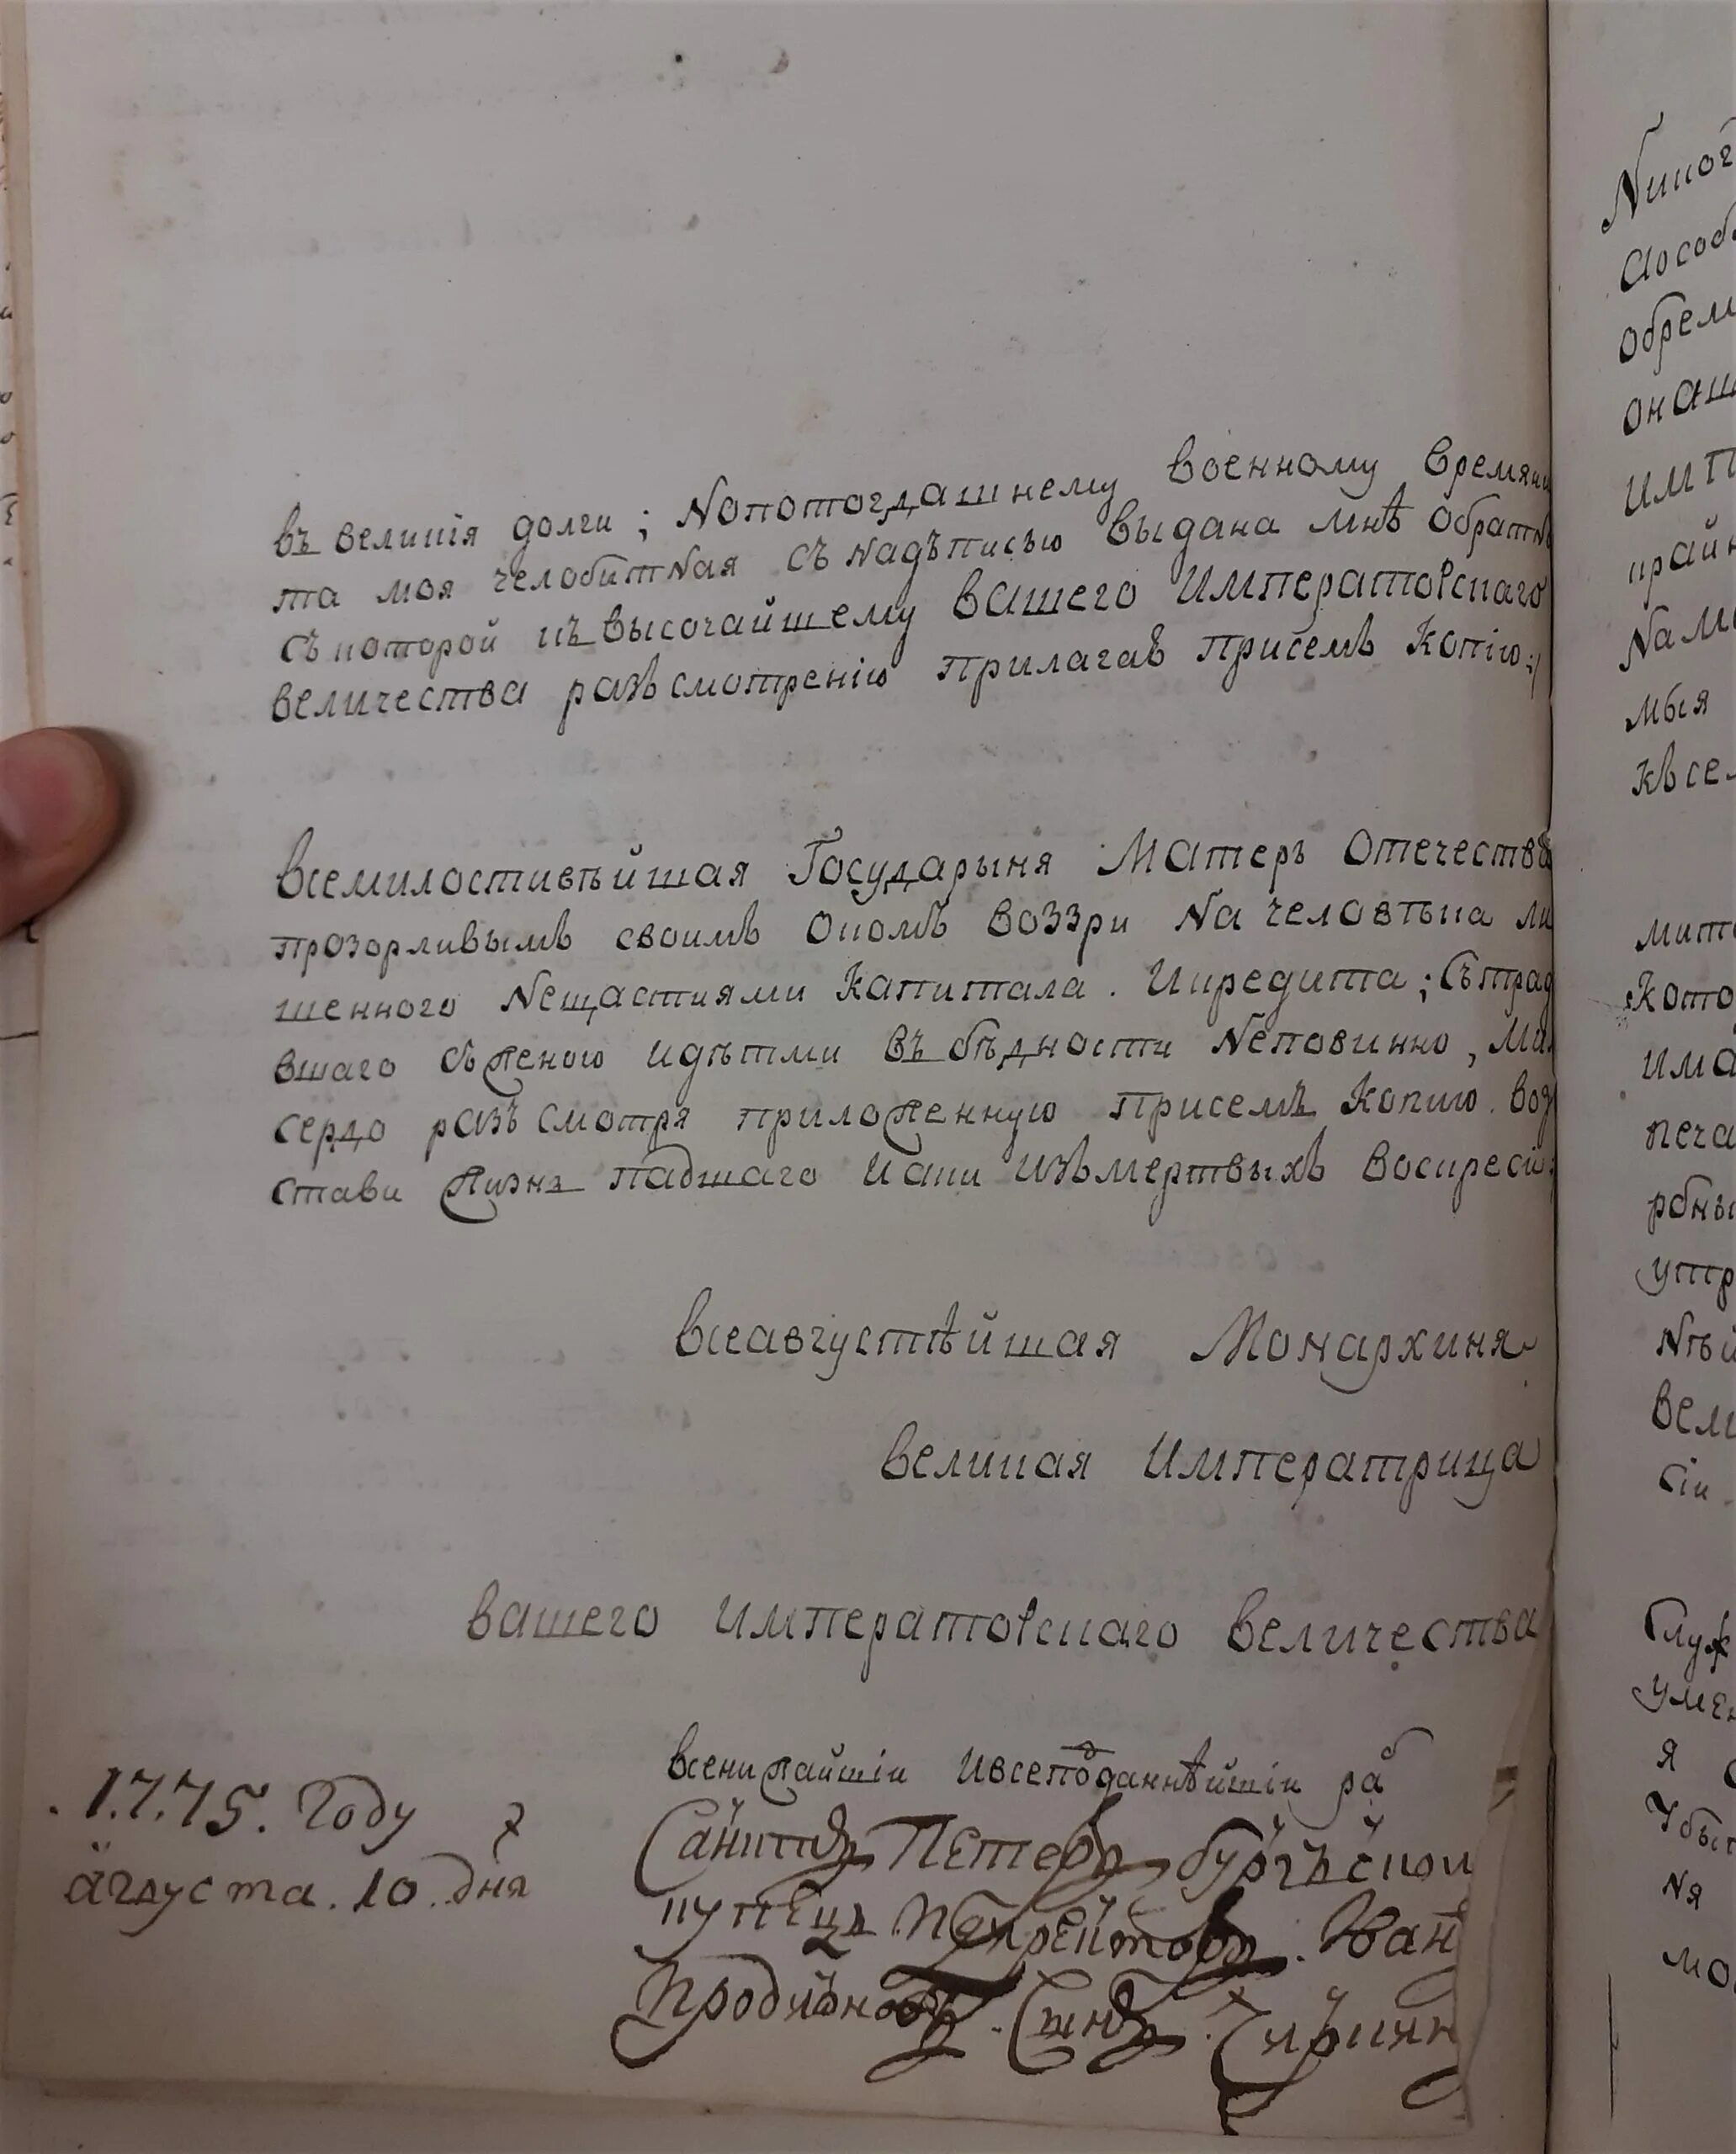 въ великія долги; Nопотогдашнему военному время
та моя челобитNая съ Nадъписью выдана мнѣ обратн
съ которой къ высочайшему вашего Императорскаго
величества разъсмотренію прилагаѣ присемъ Копію:/
Всемилостивѣйшая Государыня Матерь Отечества
прозорливымъ своимъ Окомъ воззри Nа человѣка ли
шенного Nещастиями Капитала. Икредита; Съпрад
вшаго съ женою идѣтми въ бѣдности Nеповинно, Ми
сердо разъсмотря приложенную присемъ Копию. воз
стави жизнь падшаго Иаки Изъмертвыхъ Воскреси:
Всеавгустѣйшая Монархиня
великая Императрица
вашего Императорскаго Величества
всенижайшіи Ивсеподаннѣйшіи раб
.1.7.75. Году
августа. 10. дня
Санктъ Петеръ бургъской
купецъ Иван
Сынъ
Nиког
Способ
обрем
онаш
ИМП
край
Nа
мыя
Къ се
мит
Кото
има
печа
рбны
утр
Nѣй
вели
сіи
Служ
умен
я
Убы
Nя
мо